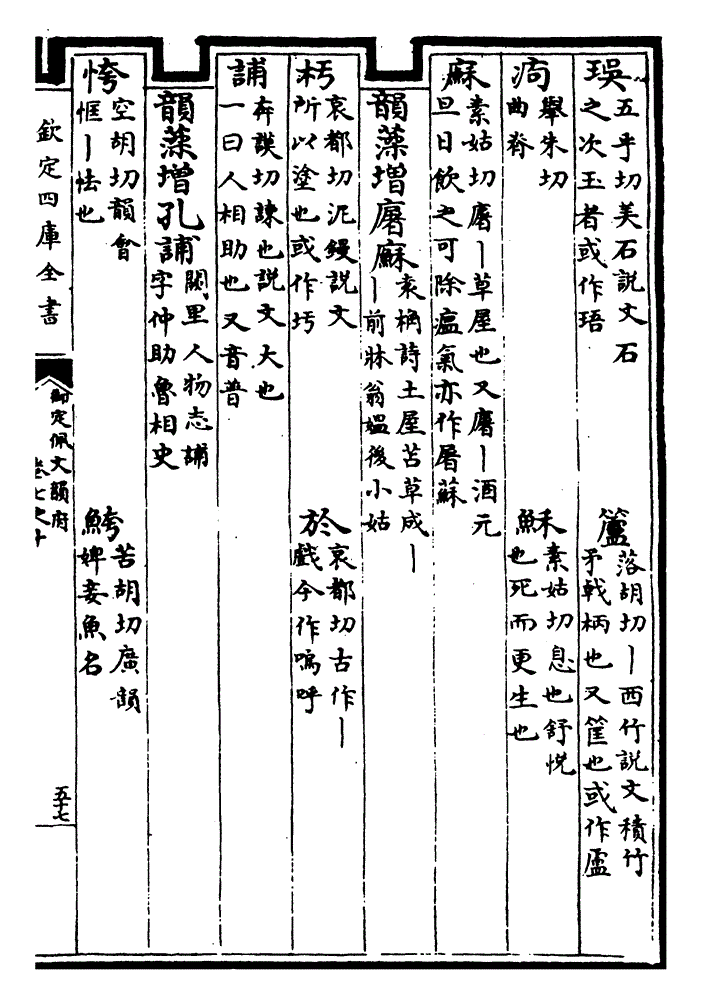 珴五乎切美石說文石之次玉者或作珸
籚落胡切丨西竹說文積竹矛戟柄也又筐也或作盧
痀舉朱切曲脊
穌素姑切息也舒悅也死而更生也
𪎭素姑切㢝丨草屋也又㢝丨酒元旦日飲之可除瘟氣亦作屠蘇
韻藻增㢝𪎭袁桷詩土屋苫草成丨丨前牀翁媼後小姑
杇哀都切泥鏝說文所以塗也或作圬
於哀都切古作丨戲今作嗚呼
誧奔謨切諫也說文大也一曰人相助也又音普
韻藻增孔誧闕里人物志誧字仲助魯相史
恗空胡切韻會恇丨怯也
鮬苦胡切廣韻婢妾魚名
欽定四庫全書
御定佩文韻府
卷七之十
五十七